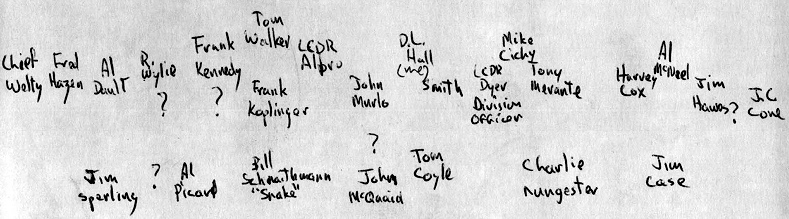 Tom
Walker
Mike
Cichy
D.L.
Hall
(me)
Chief
Welty
Eral
Hazen
Al
Dault
R.
Wylie
?
Frank
Kennedy
?
LCDR
Frank
Kaplinger
John
Murlo
?
Smith
LCDR
Dyer
Division
Officer
Tony
Harvey
Cox
Al
McNeel
Jim
Hawes?
J.C.
Cone
Jim
Sperling
?
Al
Picard
Bill
Schnaithmann
"Snake"
John
McQuaid
Tom
Coyle
Charlie
Nungester
Jim
Case